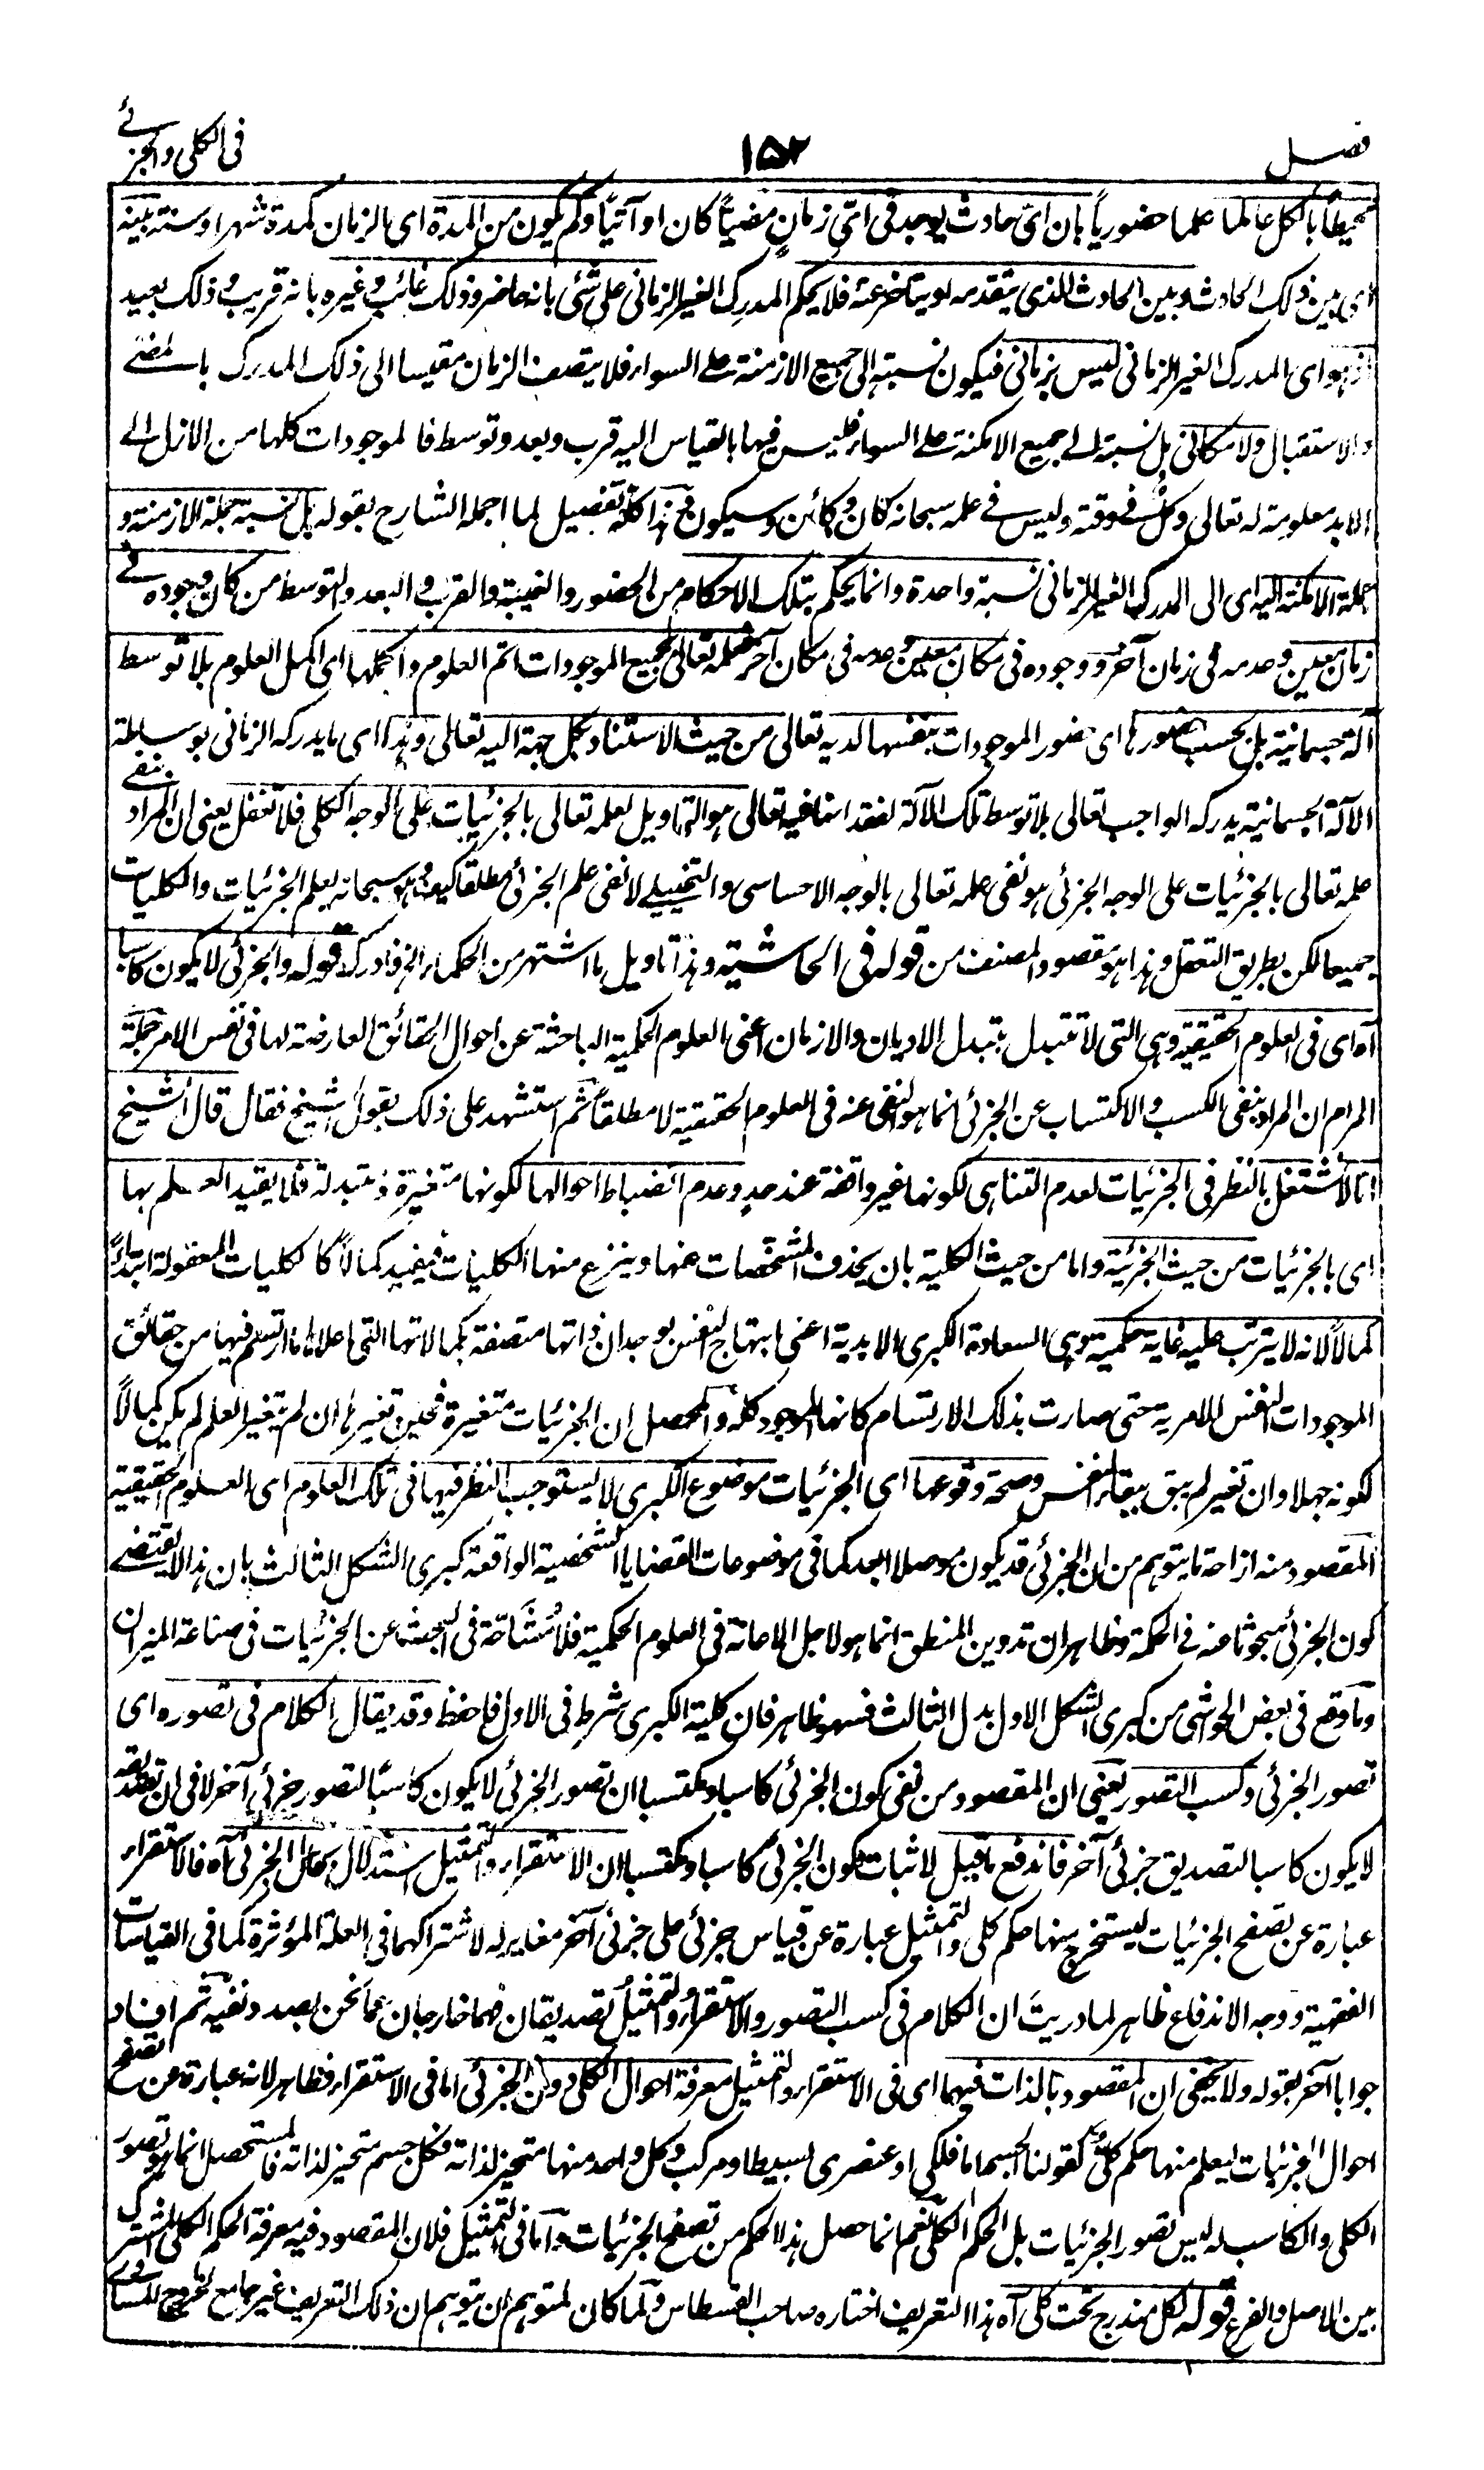 فصل ١٥٢ فى الكلى والجزئے
محيطاً بالكل عالما علما حضورياً بان اىّ حادث يوجد فى اىّ زمانٍ مضياً كان او آتياً وكم يكون من المدة اى الزمان كمدة شهر او سنة بينه
اى بين ذلك الحادث وبين الحادث الذى يتقدمه او يتأخر عنه فلا يحكم المدرِك الغير الزمانى على شئ بانه حاضر وذلك غائب وغيره بانه قريب وذلك بعيد
اذ هو اى المدرك الغير الزمانى ليس بزمانى فيكون نسبته الى جميع الازمنة على السواء فلا يتصف الزمان مقيسا الى ذلك المدرك بالمضے
والاستقبال ولا مكانى بل نسبته الے جميع الامكنة على السواء فليس فيها بالقياس اليه قرب وبعد وتوسط فالموجودات كلها من الازل الے
الابد معلومة له تعالى وكلٌ فى وقته وليس فے علمه سبحانه كان وكائن وسيكون هذا كله تفصيل لما اجمله الشارح بقوله بل نسبة جملة الازمنة و
جملة الامكنة اليه اى الى المدرك الغير الزمانى نسبة واحدة وانما يحكم بتلك الاحكام من الحضور والغيبة والقرب والبعد والتوسط من كان وجوده فے
زمان معين وعدمه فى زمان آخر ووجوده فى مكان معين وعدمه فى مكان آخر فعلمه تعالى بجميع الموجودات اتم العلوم واكملها اى اكمل العلوم بلا توسط
آلة جسمانية بل بحسب حضورها اى حضور الموجودات بنفسها لديه تعالى من حيث الاستناد بكل جهة اليه تعالى وهذا اى ما يدركه الزمانى بوساطة
الآلة الجسمانية يدركه الواجب تعالى بلا توسط تلك الآلة لفقدانها فيه تعالى هو التاويل لعلمه تعالى بالجزئيات على الوجه الكلى فلا تغفل يعنى ان المراد بنفى
علمه تعالى بالجزئيات على الوجه الجزئى هو نفى علمه تعالى بالوجه الاحساسى والتخييلے لا نفى علم الجزئى مطلقا كيف وهو سبحانه يعلم الجزئيات والكليات
جميعا لكن بطريق التعقل وهذا هو مقصود المصنف من قوله فى الحاشية وهذا تاويل ما اشتهر من الحكماء الخ فادرك قوله والجزئى لا يكون كاسبا
آه اى فى العلوم الحقيقية وهى التى لا تتبدل بتبدل الاديان والازمان اعنى العلوم الحكمية الباحثة عن احوال الحقائق العارضة لها فى نفس الامر جملة
المرام ان المراد بنفى الكسب والاكتساب عن الجزئى انما هو النفى عنه فى العلوم الحقيقية لا مطلقاً ثم استشهد على ذلك بقول الشيخ فقال قال الشيخ
انا لا نشتغل بالنظر فى الجزئيات لعدم التناهى لكونها غير واقفة عند حدٍ وعدم انضباط احوالها لكونها متغيرة ومتبدلة فلا يفيد العلم بها
اى بالجزئيات من حيث الجزئية واما من حيث الكلية بان يحذف المشخصات عنها وينزع منها الكليات فيفيد كمالاً كالكليات المعقولة ابتداءً
كمالاً لانه لا يترتب عليه غاية حكمية وهى السعادة الكبرى الابدية اعنى ابتهاج النفس بوجدان ذاتها متصفة بكمالاتها التى اعلاها ما ارتسم فيها من حقائق
الموجودات النفس الامرية حتى صارت بذلك الارتسام كانها الموجود كله والمحصل ان الجزئيات متغيرة فحين تغيرها ان لم يتغير العلم لم يكن كمالاً
لكونه جهلا وان تغير لم يبق ببقاء النفس وصحة وقوعها اى الجزئيات موضوع الكبرى لا يستوجب النظر فيها فى تلك العلوم اى العلوم الحقيقية
المقصود منه ازاحة ما يتوهم من ان الجزئى قد يكون موصلا ابعد كما فى موضوعات القضايا الشخصية الواقعة كبرى الشكل الثالث بان هذا لا يقتضے
كون الجزئى مبحوثا عنه فے الحكمة وظاهر ان تدوين المنطق انما هو لاجل الاعانة فى العلوم الحكمية فلا مُشَاحّة فى البحث عن الجزئيات فى صناعة الميزان
وما وقع فى بعض الحواشى من كبرى الشكل الاول بدل الثالث فسهو ظاهر فان كلية الكبرى شرط فى الاول فاحفظ وقد يقال الكلام فى تصوره اى
تصور الجزئى وكسب التصور يعنى ان المقصود من نفى كون الجزئى كاسبا ومكتسبا ان تصور الجزئى لا يكون كاسبًا لتصور جزئى آخر لا فى ان تصديقه
لا يكون كاسبا لتصديق جزئى آخر فاندفع ما قيل لاثبات كون الجزئى كاسبا ومكتسبا ان الاستقراء والتمثيل استدلال بحال الجزئى آه فالاستقراء
عبارة عن تصفح الجزئيات ليستخرج منها حكم كلى والتمثيل عبارة عن قياس جزئى على جزئى آخر مغاير له لاشتراكهما فى العلة المؤثرة كما فى القياسات
الفقهية ووجه الاندفاع ظاهر لما دريتَ ان الكلام فى كسب التصور والاستقراء والتمثيل تصديقان فهما خارجان عما نحن بصدد نفيه ثم افاد
جوابا آخر بقوله ولا يخفى ان المقصود بالذات فيهما اى فى الاستقراء والتمثيل معرفة احوال الكلى دون الجزئى اما فى الاستقراء فظاهر لانه عبارة عن تصفح
احوال الجزئيات ليعلم منها حكم كلى كقولنا الجسم اما فلكى او عنصرى بسيط او مركب وكل واحد منها متحيز لذاته فكل جسم متحيز لذاته فالمستحصل انما هو تصور
الكلى والكاسب له ليس تصور الجزئيات بل الحكم الكلى نعم انما حصل هذا الحكم من تصفح الجزئيات واما فى التمثيل فلان المقصود فيه معرفة الحكم الكلى المشترك
بين الاصل والفرع قوله لكل مندرج تحت كلى آه هذا التعريف اختاره صاحب القسطاس ولما كان لمتوهم ان يتوهم ان ذلك التعريف غير جامع لخروج المساوى